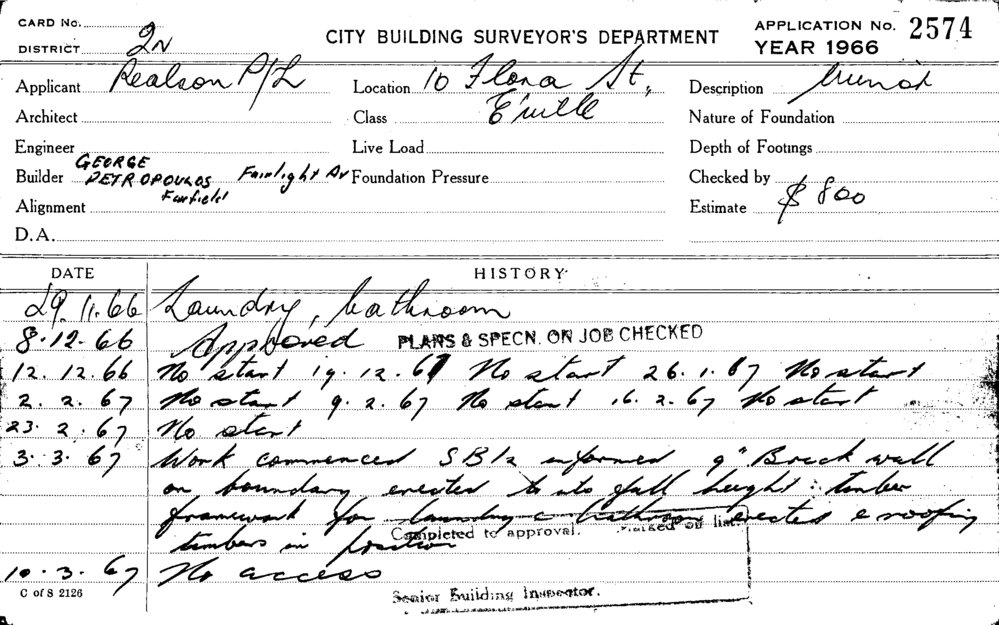 CARD No.
DISTRICT 2N
CITY BUILDING SURVEYOR'S DEPARTMENT
APPLICATION No. 2574
YEAR 1966
Applicant Realson P/L
Location 10 Flora St, E'ville
Description
Architect
Class
Nature of Foundation
Engineer
Live Load
Depth of Footings
Builder GEORGE PETROPOULOS Fairlight Av Fairfield
Foundation Pressure
Checked by
Alignment
Estimate $ 800
D.A.
DATE HISTORY
29.11.66 Laundry, bathroom
8.12.66 Approved PLANS & SPECN. ON JOB CHECKED
12.12.66 No start 19.12.67 No start 26.1.67 No start
2.2.67 No start 9.2.67 No start 16.2.67 No start
23.2.67 No start
3.3.67 Work commenced informed 9" Brick wall
on boundary erected to its full height timber
framework for laundry & bathroom erected & roofing
timbers in position
Completed to approval. Marked off list.
10.3.67 No access
C of S 2126
Senior Building Inspector.